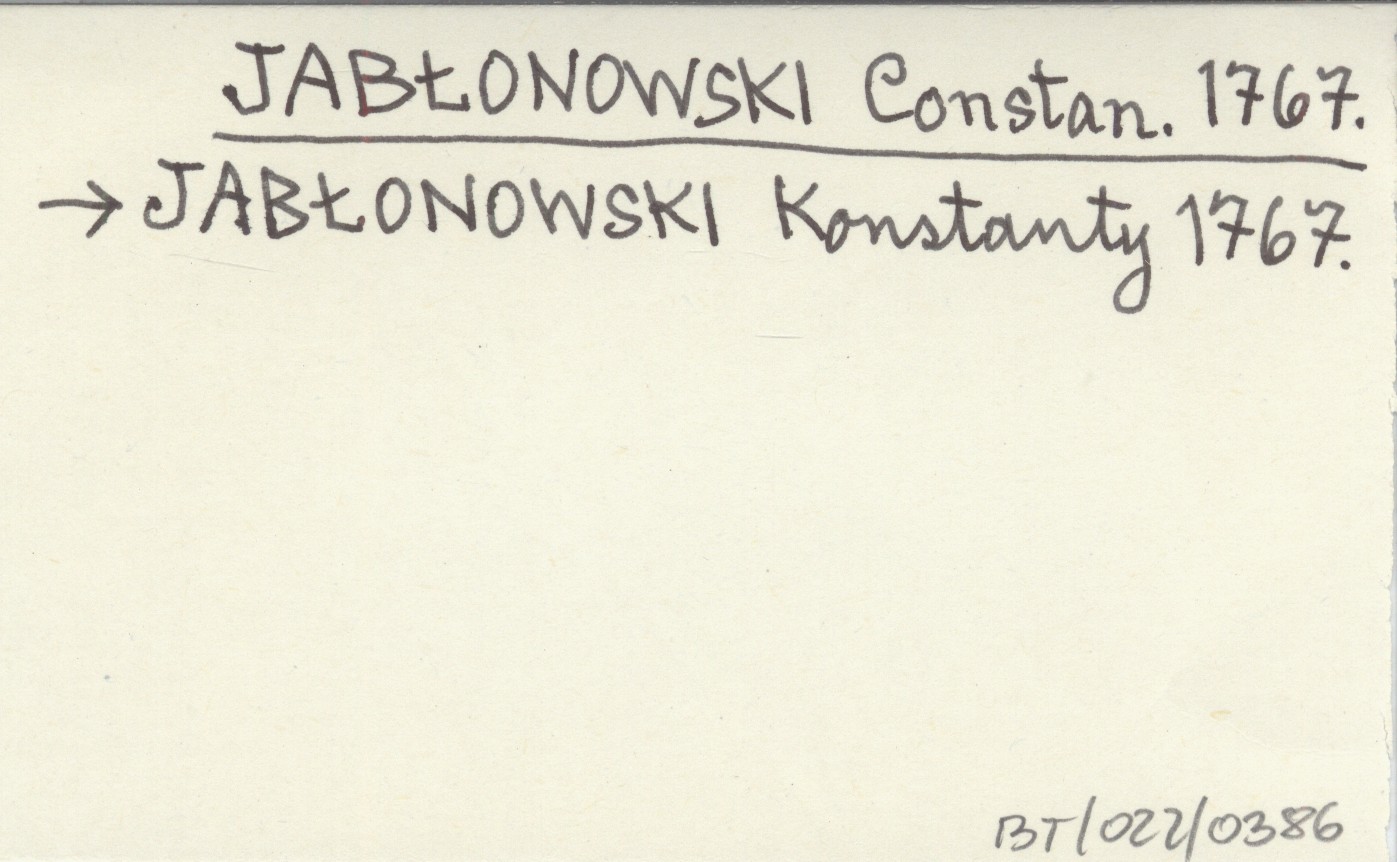 JABŁONOWSKI Constan. 1767.
→ JABŁONOWSKI Konstanty 1767.
BT/022/0386